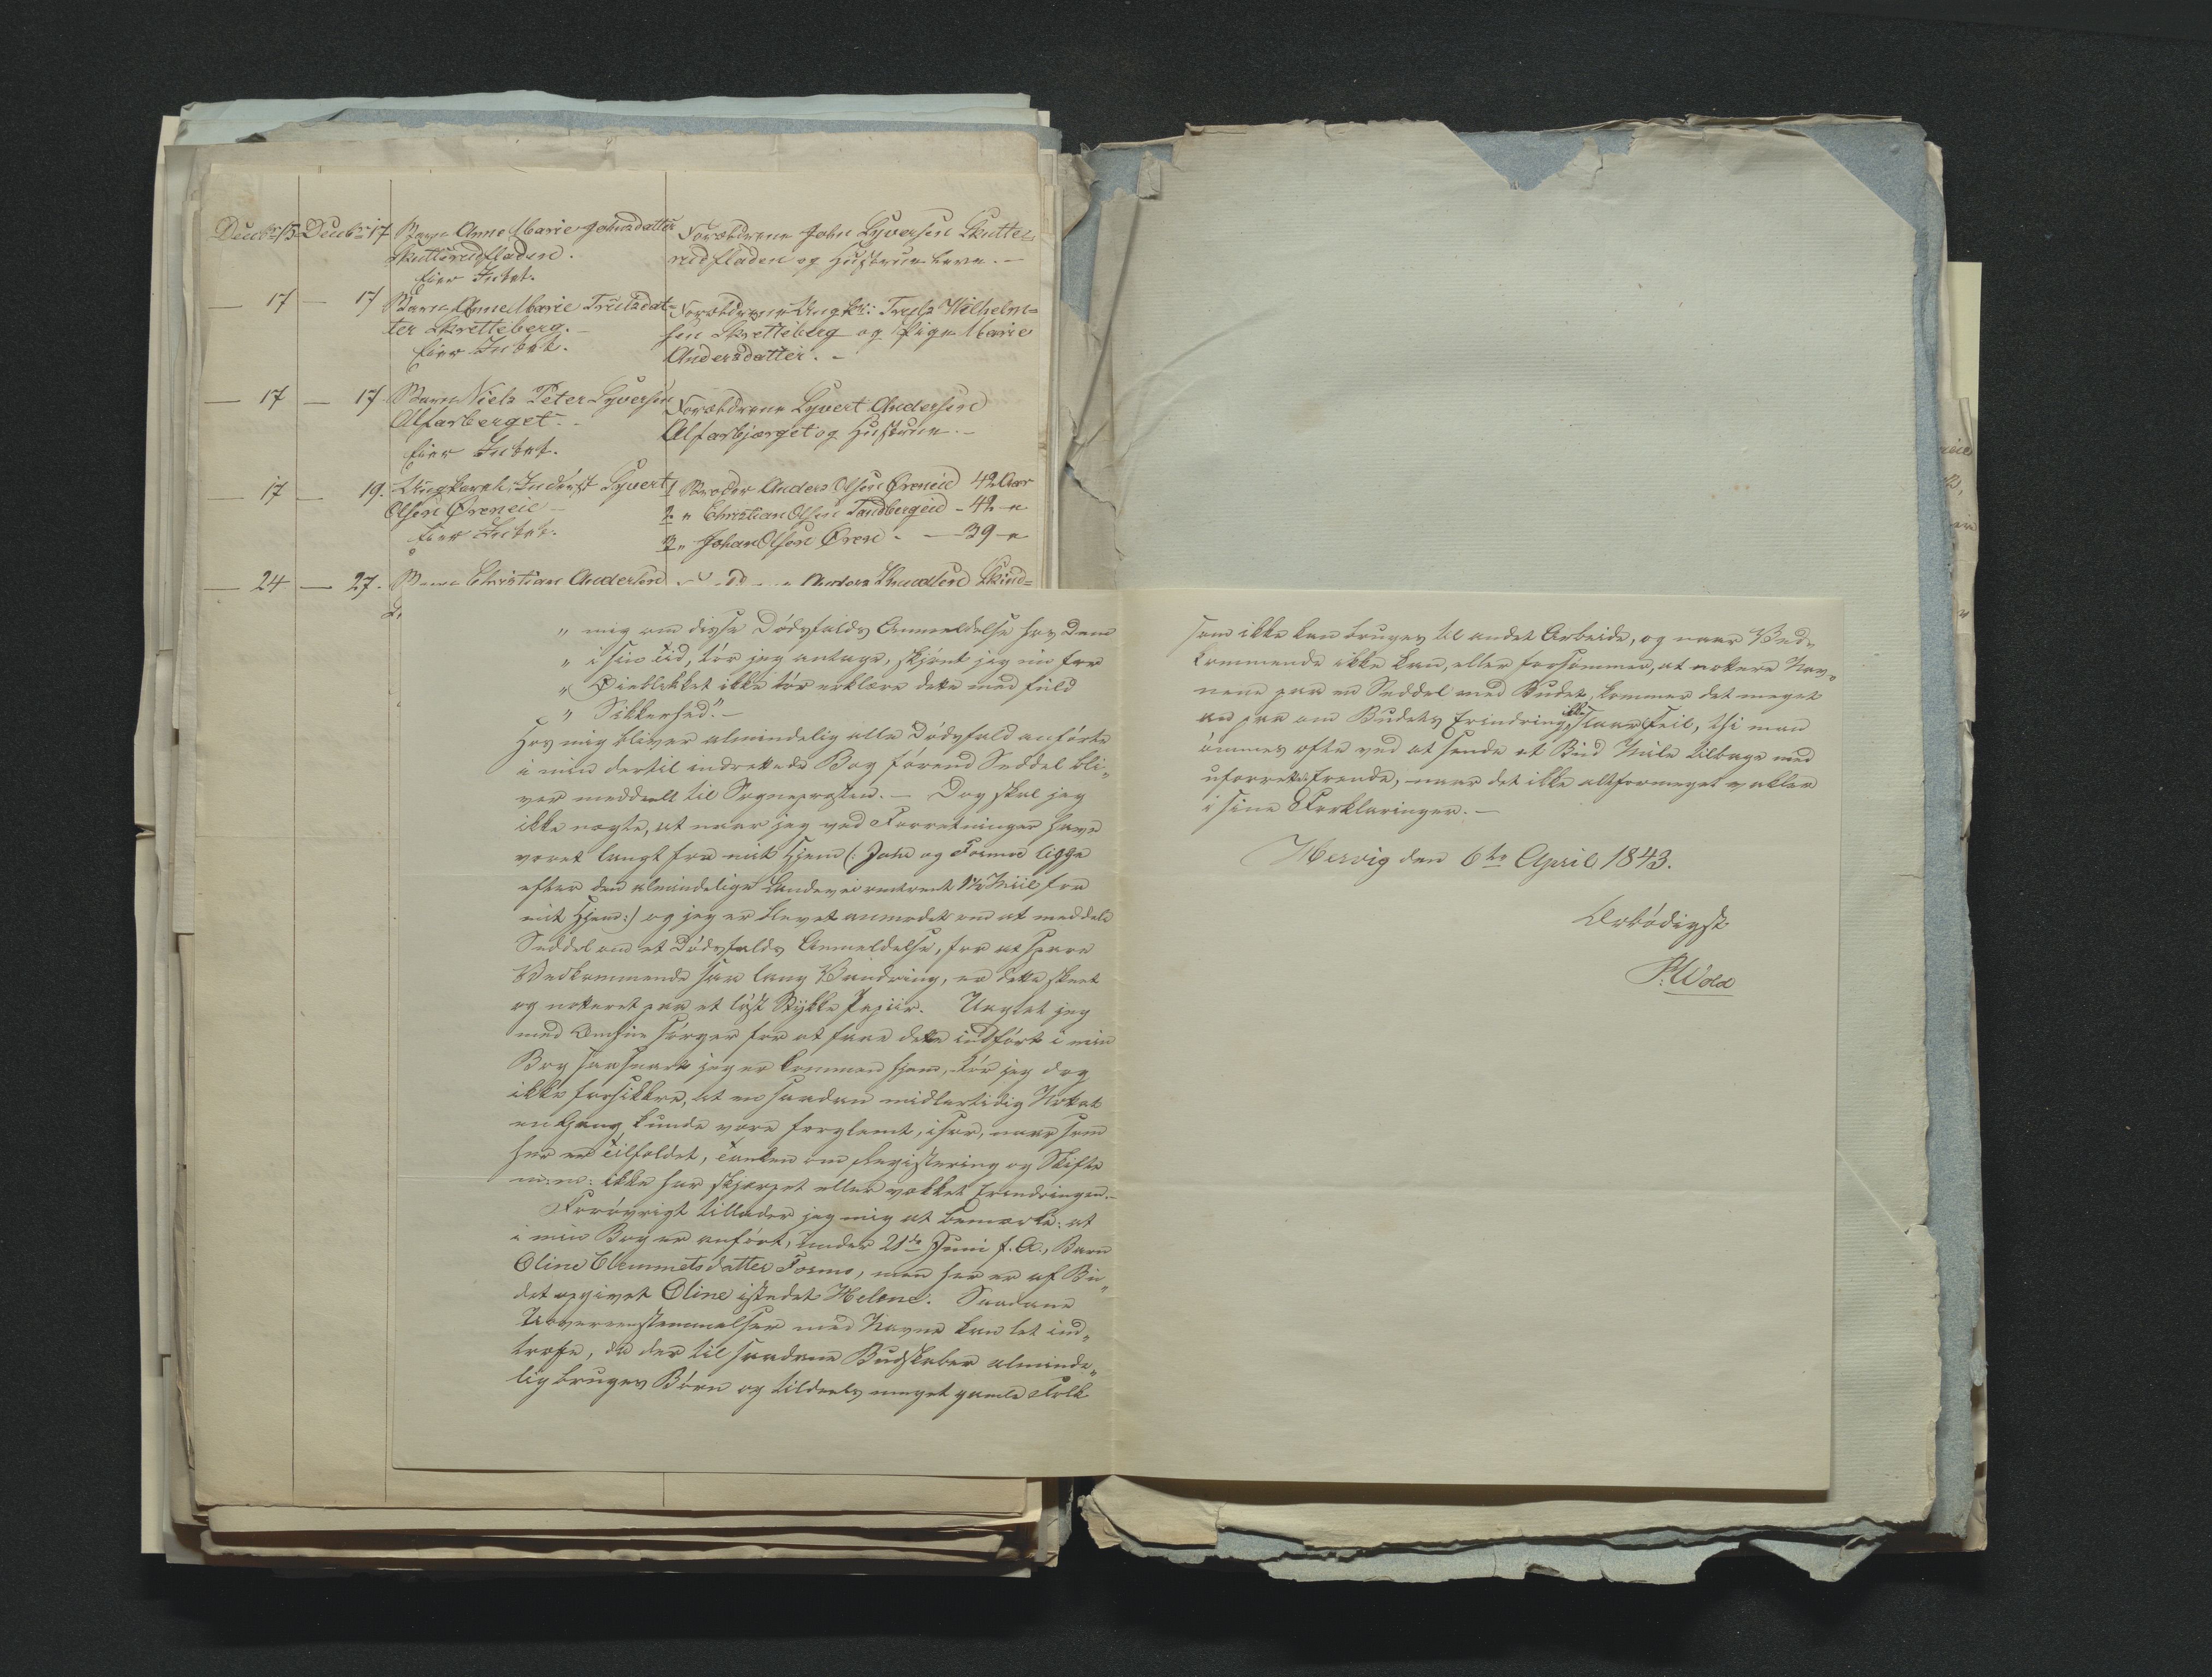 Decbr 15 Decbr 17 Barn Anne Marie Johnsdatter
Skutterudfladen.
Eier Intet.
Forældrene John Syversen Skutte-
rudfladen og Hustrue leve. —
— 17 — 17 Barn Anne Marie Trulsdat-
ter Skretteberg. —
Eier Intet.
Forældrene Ungk: Truls Wilhelm-
sen Skretteberg og Pige Marie
Andersdatter. —
— 17 — 17 Barn Niels Peter Syversen
Alfarberget. -
Eier Intet.
Forældrene Syvert Andersen
Alfarbjerget og Hustrue. —
— 17 — 19. Ungkarl, Inderst Syvert
Olsen Øreneie —
Eier Intet.
1 Broder Anders Olsen Øreneie 42 Aar
2. " Christian Olsen Sandbergeie - 42 - "
3. " Johan Olsen Øren. — 39 - "
— 24 — 27. Barn Christian Andersen
Anders Knudsen Skind-
" mig om disse Dødsfalds Anmeldelse hos Dem
" i sin Tid, tør jeg antage, skjønt jeg nu for
" Øieblikket ikke tør erklære dette med fuld
" Sikkerhed." —
Hos mig bliver almindelig alle Dødsfald anførte
i min dertil indrettede Bog førend Seddel bli-
ver meddeelt til Sognepresten. — Dog skal jeg
ikke negte, at naar jeg ved Forretninger have
været langt fra mit Hjem (: Jahr og Fosmoe ligge
efter den almindelige Landevei omtrent 1½ Miil fra
mit Hjem:) og jeg er blevet anmodet om at meddele
Seddel om et Dødsfalds Anmeldelse, for at spare
Vedkommende saa lang Vandring, er dette skeet
og noteret paa et løst Stykke Papiir. Uagtet jeg
med Omhue sørger for at faae dette indført i min
Bog saasnart jeg er kommen hjem, tør jeg dog
ikke forsikkre, at en saadan midlertidig Notat
en Gang kunde være forglemt, især, naar som
her er Tilfældet, Tanken om Registering og Skifte
m: m: ikke har skjærpet eller vækket Erindringen. —
Forøvrigt tillader jeg mig at bemærke: at
i min Bog er anført, under 21de Juni f. A., Barn
Oline Clemmetsdatter Fosmo, men her er af Bu-
det opgivet Oline istedet Helene. Saadane
Uoverensstemmelser med Navne kan let ind-
træffe, da der til saadane Budskaber alminde-
lig bruges Børn og tildeels meget gamle Folk
som ikke kan bruges til andet Arbeide, og naar Ved-
kommende ikke kan, eller forsømmer, at notere Nav-
nene paa en Seddel med Budet, kommer det meget
an paa om Budets Erindring ikke slaaer Feil, thi man
ømmes ofte ved at sende et Bud Mile tilbage med
uforrettet Ærende, naar det ikke altformeget vakler
i sine Forklaringer. —
Mesvig den 6te April 1843.
Ærbødigst
P. Wold